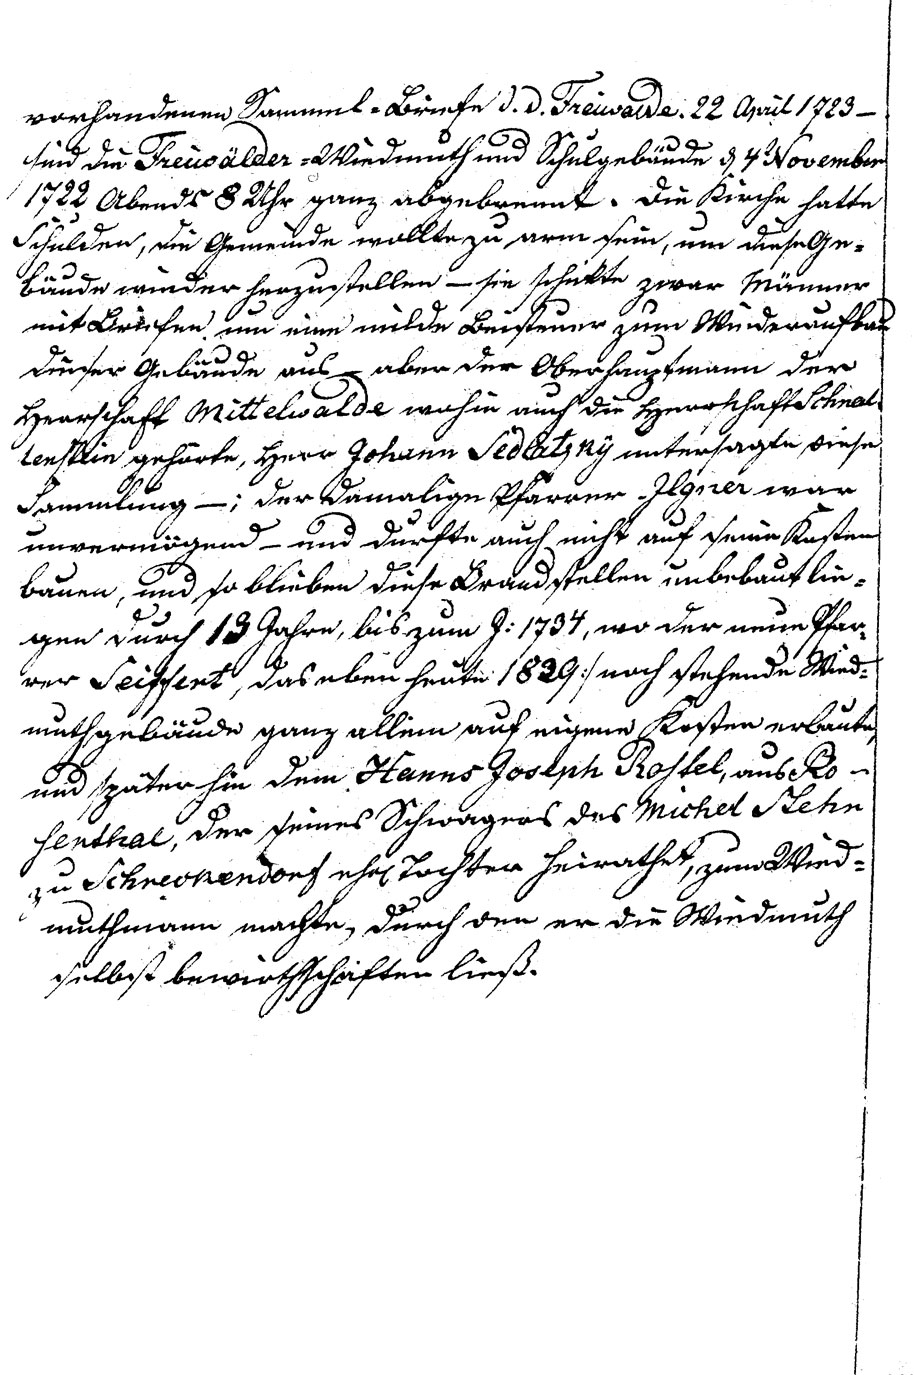 vorhandenen Sammel=Briefe d. d. Freiwalde. 22 April 1723 —
sind die Freiwälder=Wiedmuth und Schulgebäude d 4t November
1722 Abends 8 Uhr ganz abgebrennt. Die Kirche hatte
Schulden, die Gemeinde wollte zu arm sein, um diese Ge=
bäude wieder herzustellen — sie schikte zwar Männer
mit Briefen um eine milde Beisteuer zum Wiederaufbau
dieser Gebäude aus — aber der Oberhauptmann der
Herrschaft Mittelwalde wohin auch die Herrschaft Schnal
lenstein gehörte, Herr Johann Sedlatzny untersagte diese
Sammlung —; der damalige Pfarrer Ilgner war
unvermögend — und durfte auch nicht auf seine Kosten
bauen, und so blieben diese Brandstellen unbebaut lie=
gen durch 13 Jahre, bis zum J: 1734, wo der neue Pfar=
rer Seiffert, das eben heute 1839:/ noch stehende Wied=
muthgebäude ganz allein auf eigene Kosten erbaute,
und später hin dem Hanns Joseph Rostel, aus Ro=
senthal, der seines Schwagers des Michel
zu Schreckendorf Tochter heirathet, zum Wied=
muthmann machte, durch den er die Wiedmuth
selbst bewirthschaften ließ.